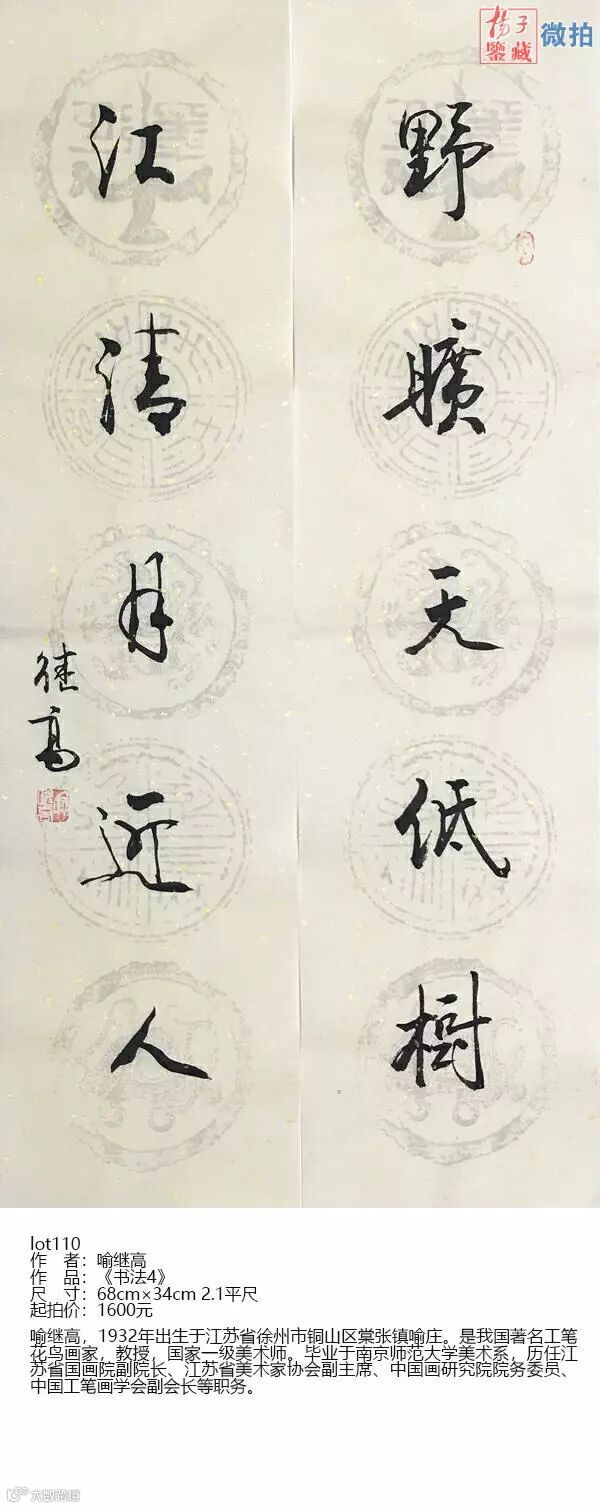 揚子
鑒藏
微拍
野曠天低樹
江清月近人
继高
lot110
作 者：喻继高
作 品：《书法4》
尺 寸：68cm×34cm 2.1平尺
起拍价：1600元
喻继高，1932年出生于江苏省徐州市铜山区棠张镇喻庄。是我国著名工笔
花鸟画家，教授，国家一级美术师。毕业于南京师范大学美术系，历任江
苏省国画院副院长、江苏省美术家协会副主席、中国画研究院院务委员、
中国工笔画学会副会长等职务。
大数跨境